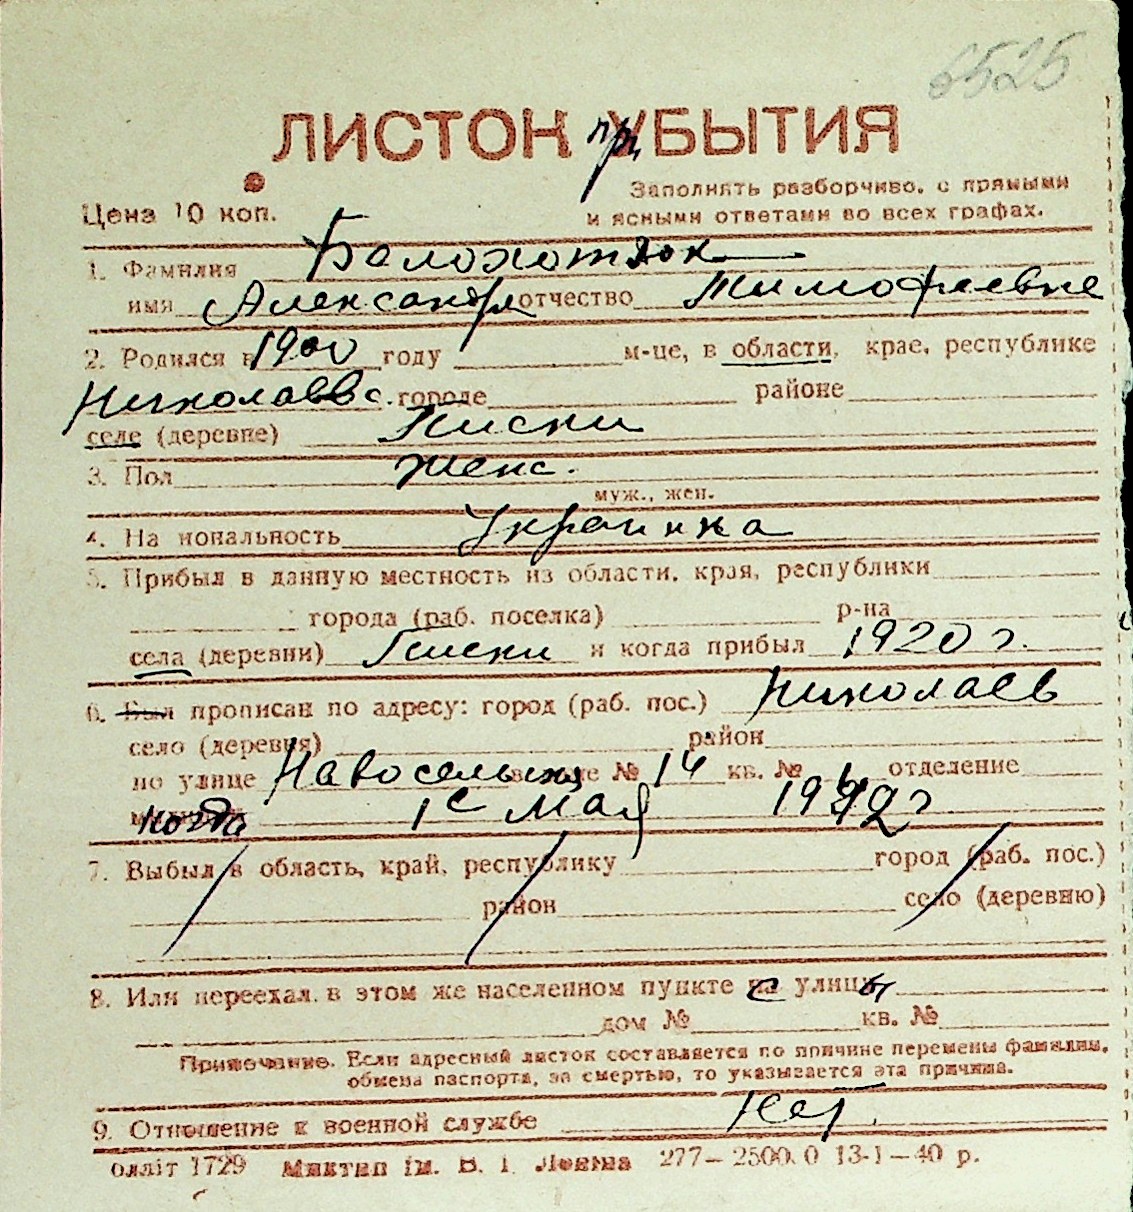 6525
ЛИСТОК при УБЫТИЯ
Заполнять разборчиво, с прямыми
Цена 10 коп. и ясными ответами во всех графах.
1. Фамилия Белохотюк
имя Александра отчество Тимофеевне
2. Родился в 1900 году м-це, в области, крае, республике
Николаевс. городе районе
селе (деревне) Писки
3. Пол женс.
муж., жен.
4. На иональность Украинка
5. Прибыл в данную местность из области, края, республики
города (раб. поселка) р-на
села (деревни) Писки и когда прибыл 1920 г.
6. Был прописан по адресу: город (раб. пос.) Николаев
село (деревня) район
по улице Новосельск № 14 кв. № отделение
когда 1 с мая 1942 г
7. Выбыл в область, край, республику город (раб. пос.)
район село (деревню)
8. Или переехал в этом же населенном пункте с улицы
дом № кв. №
Примечание. Если адресный листок составляется по причине перемены фамилии,
обмена паспорта, за смертью, то указывается эта причина.
9. Отношение к военной службе Нет.
олліт 1729 ім. В. І. Леніна 277—2500.0 13-1—40 р.